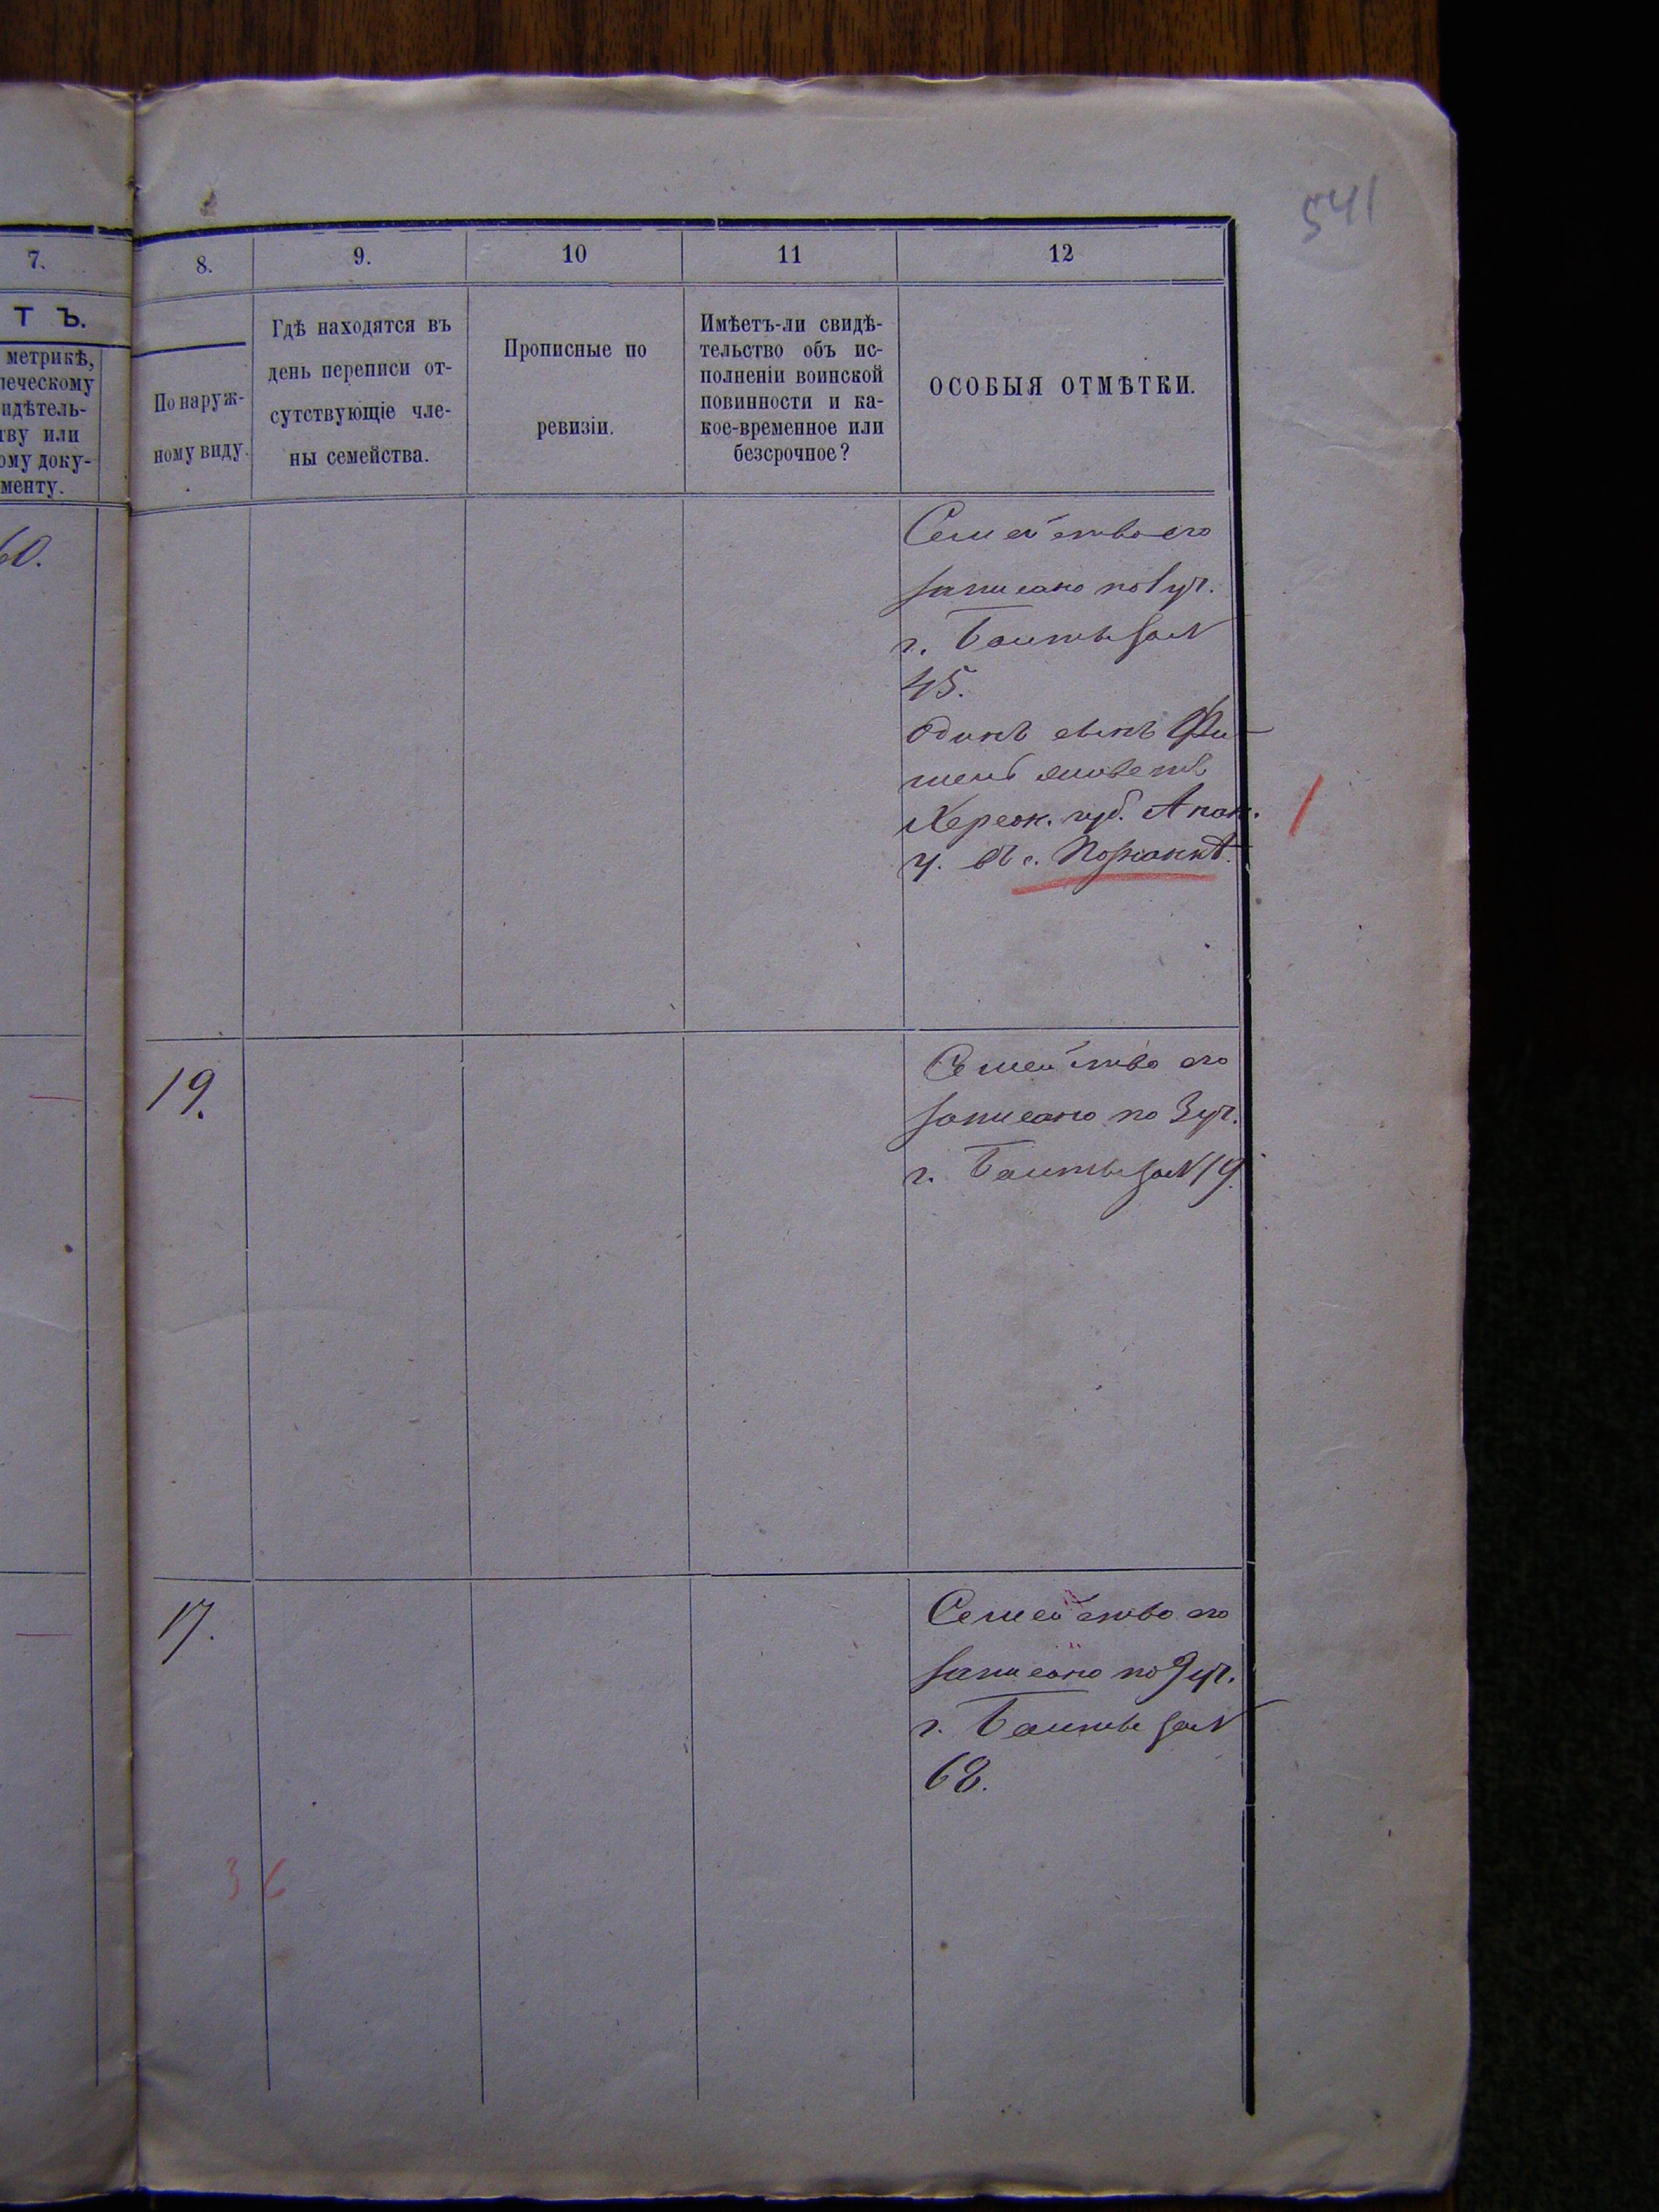 541
7.
8.
9.
10
11
12
Т Ъ.
метрикѣ,
ческому
идѣтель-
тву или
ому доку-
менту.
По наруж-
ному виду.
Гдѣ находятся въ
день переписи от-
сутствующіе чле-
ны семейства.
Прописные по
ревизіи.
Имѣетъ-ли свидѣ-
тельство объ ис-
полненіи воинской
повинности и ка-
кое-временное или
безсрочное?
ОСОБЫЯ ОТМѢТКИ.
60.
Семейство его
записано по 1 уч.
г. Балты за N
45.
Одинъ сынъ Фи-
шель живетъ
Херсон. губ. Анан.
у. въ с.
19.
Семейство его
записано по 3 уч.
г. Балты за N 19.
17.
Семейство его
записано по 9 уч.
г. Балты за N
68.
36